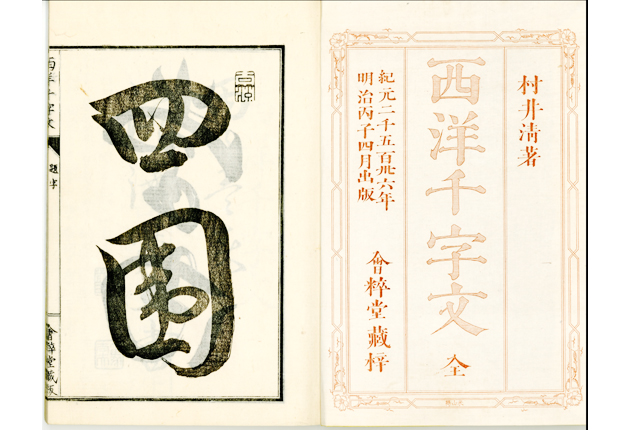 村井清著
西洋千字文
全
紀元二千五百卅六年
明治丙子四月出版
會粹堂藏梓
四围
西洋千字文
題字
會粹堂藏版